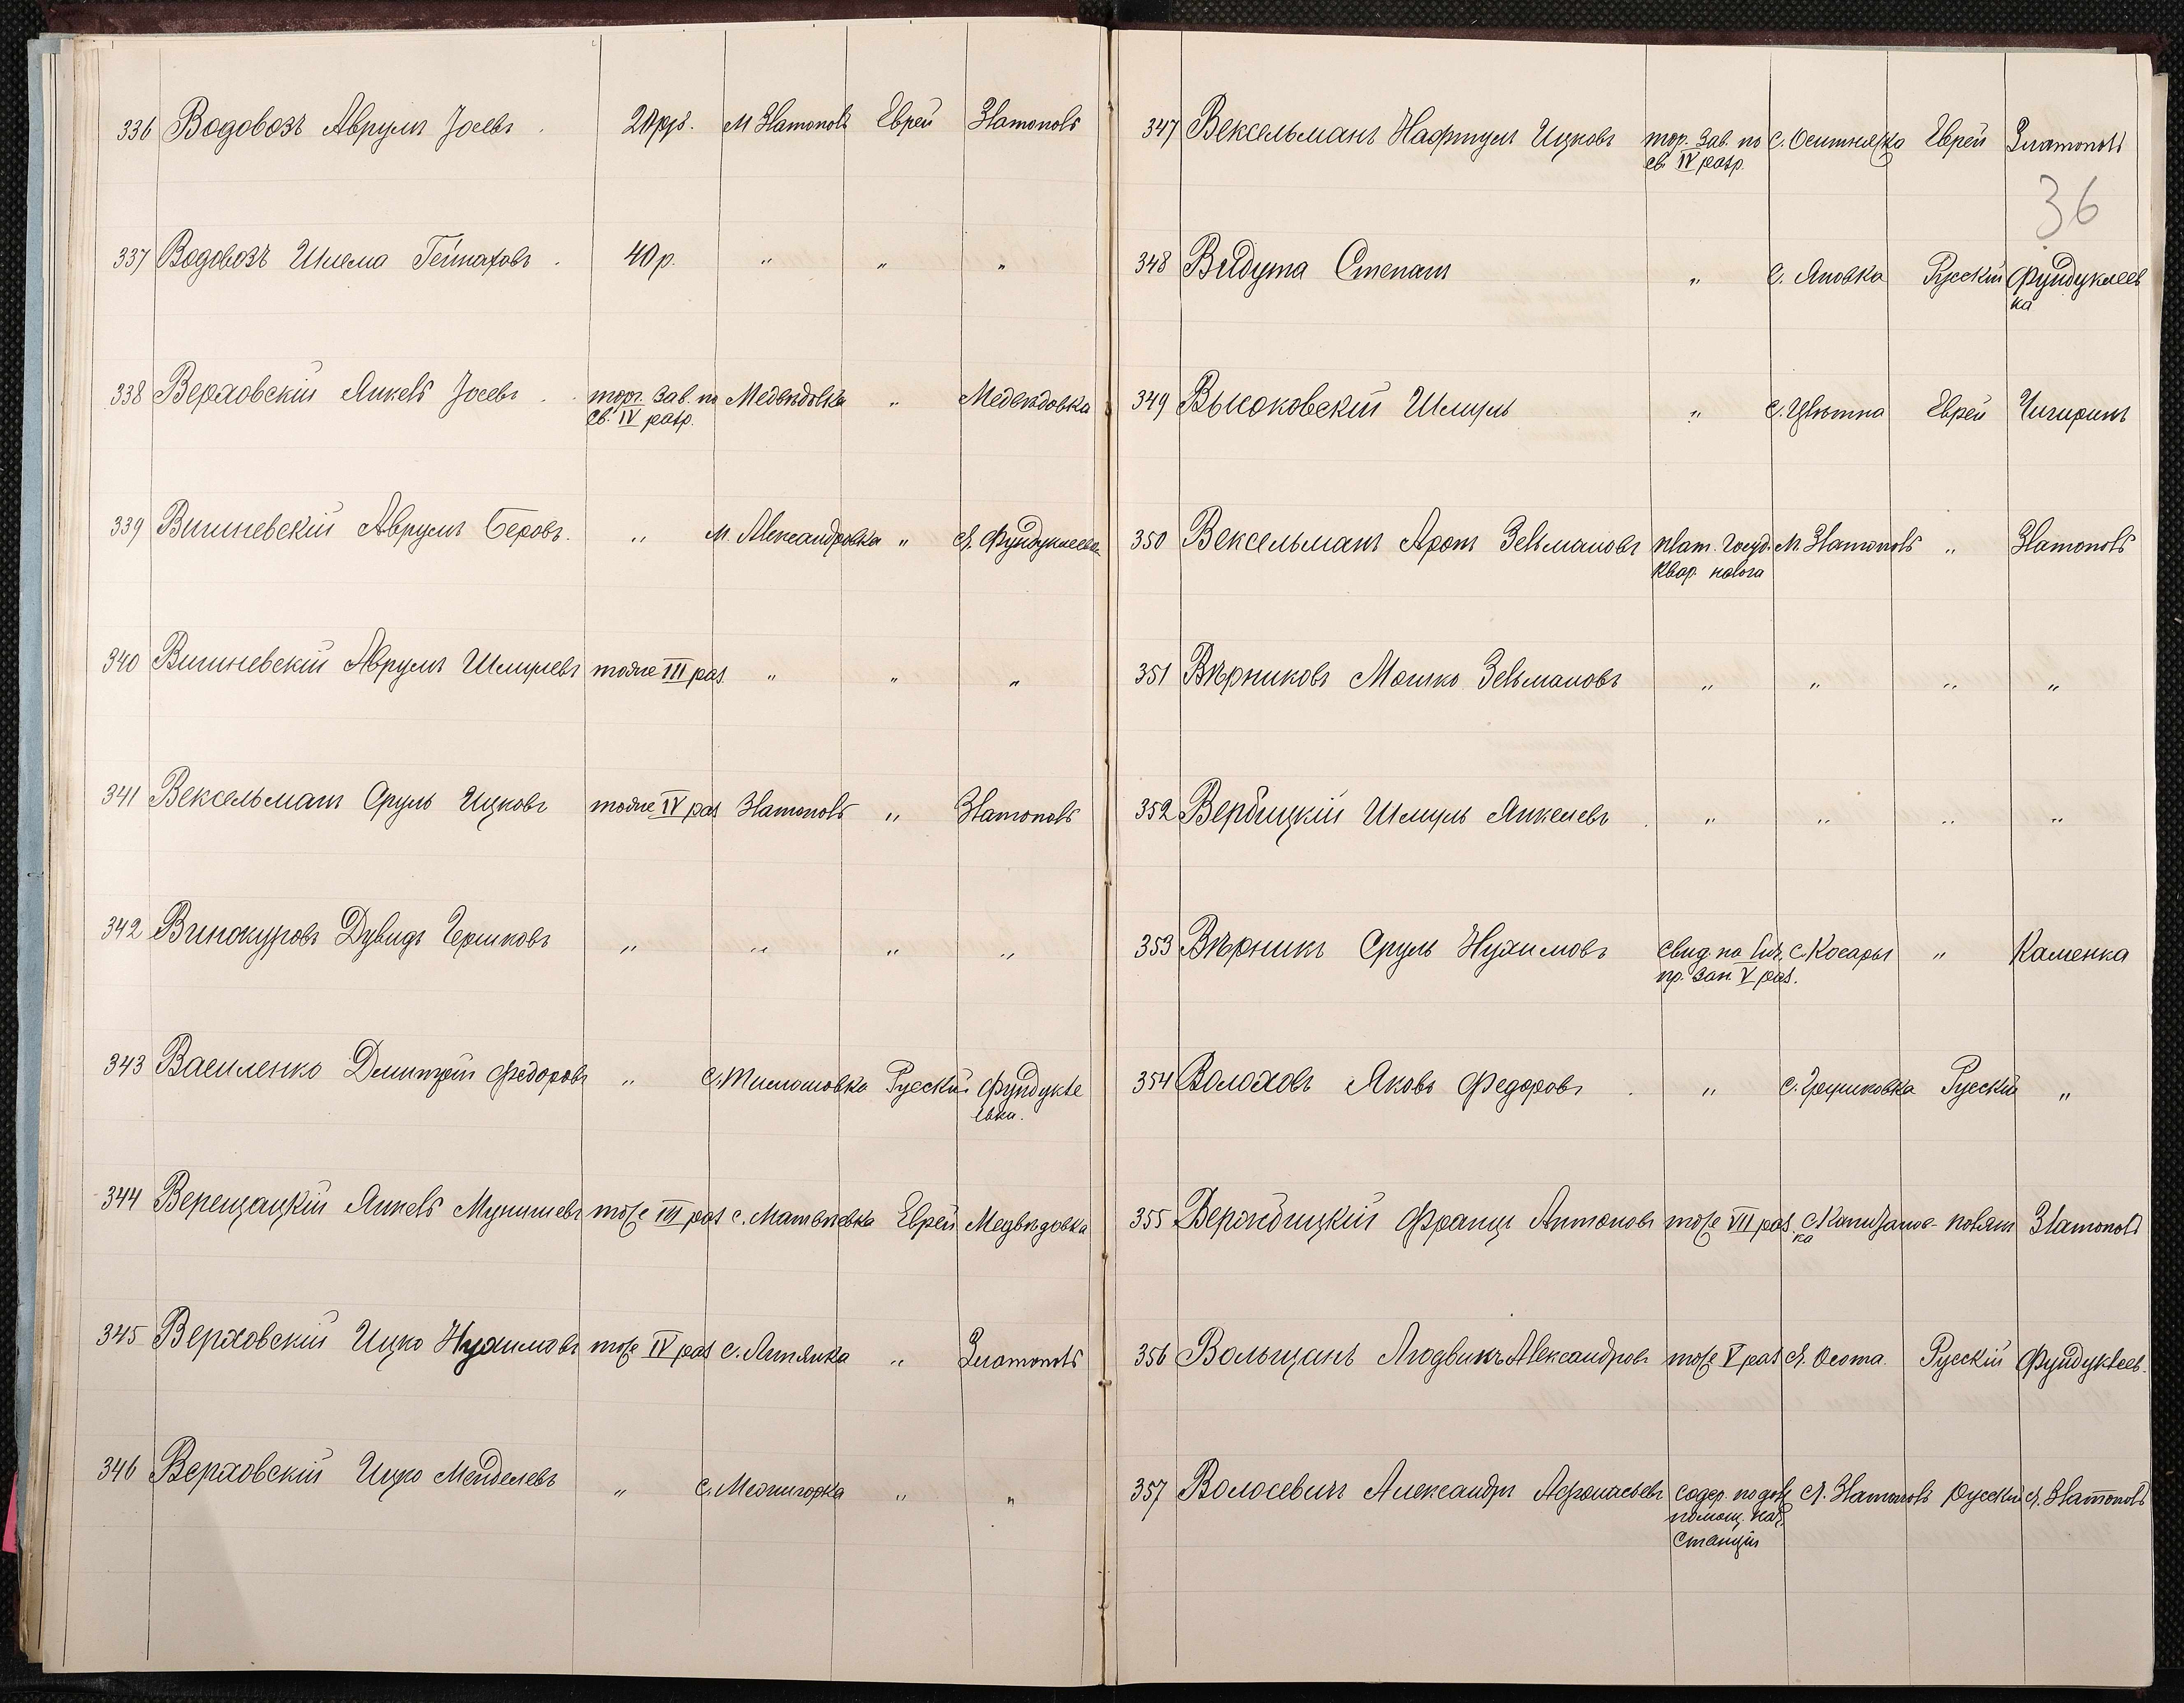 336 Водовозъ Аврумъ Іосевъ 20 руб. М Златополь Еврей Златополь
337 Водовозъ Шлема 40 р. " " "
338 Верховскій Янкель Іосевъ торг. зав. по Медвѣдовка " Медвѣдовка
св. IV разр.
339 Вишневскій Аврумъ Беровъ " М. Александровка " С. Фундуклеевка
340 Вишневскій Аврумъ Шмулевъ тоже III раз " " "
341 Вексельманъ Сруль Ицковъ тоже IV раз Златополь " Златополь
342 Винокуровъ Дувидъ Гершковъ " " " "
343 Василенко Дмитрій Федоровъ " Русскій Фундукле
евка.
344 Верещацкій Янкель Мунишевъ тоже III раз с. Матвѣевка Еврей Медвѣдовка
345 Верховскій Ицко Нухимовъ тоже IV раз с. Липянка " Златополь
346 Верховскій Ицко Менделевъ " с. Межигорка " "
347 Вексельманъ Нафтулъ Ицковъ тор. зав. по С. Оситняжка Еврей Златополь
св. IV разр.
36
348 Видута Степанъ " С. Яновка Русскій Фундуклеев
ка
349 Высоковскій Шмуль " С. Цвѣтна Еврей Чигиринъ
350 Вексельманъ Аронъ Зельмановъ плат. Госуд. М. Златополь " Златополь
квар. налога
351 Вѣрниковъ Мошко Зельмановъ " " " "
352 Вербицкій Шмуль Янкелевъ " " " "
353 Вѣрникъ Сруль Нухимовъ свид. на лич. С. Косары " Каменка
пр. зан. V раз.
354 Волоховъ Яковъ Федоровъ " Русскій "
355 Вержбицкій Францъ Антоновъ тоже VII раз С. Капитанов- полякъ Златополь
ка
356 Вольщанъ Людвикъ Александровъ тоже V раз С. Осота. Русскій Фундуклеев.
357 Волосевичъ Александръ Афонасьевъ содер. по долж. С. Златополь Русскій С. Златополь
помощ. нач.
станціи